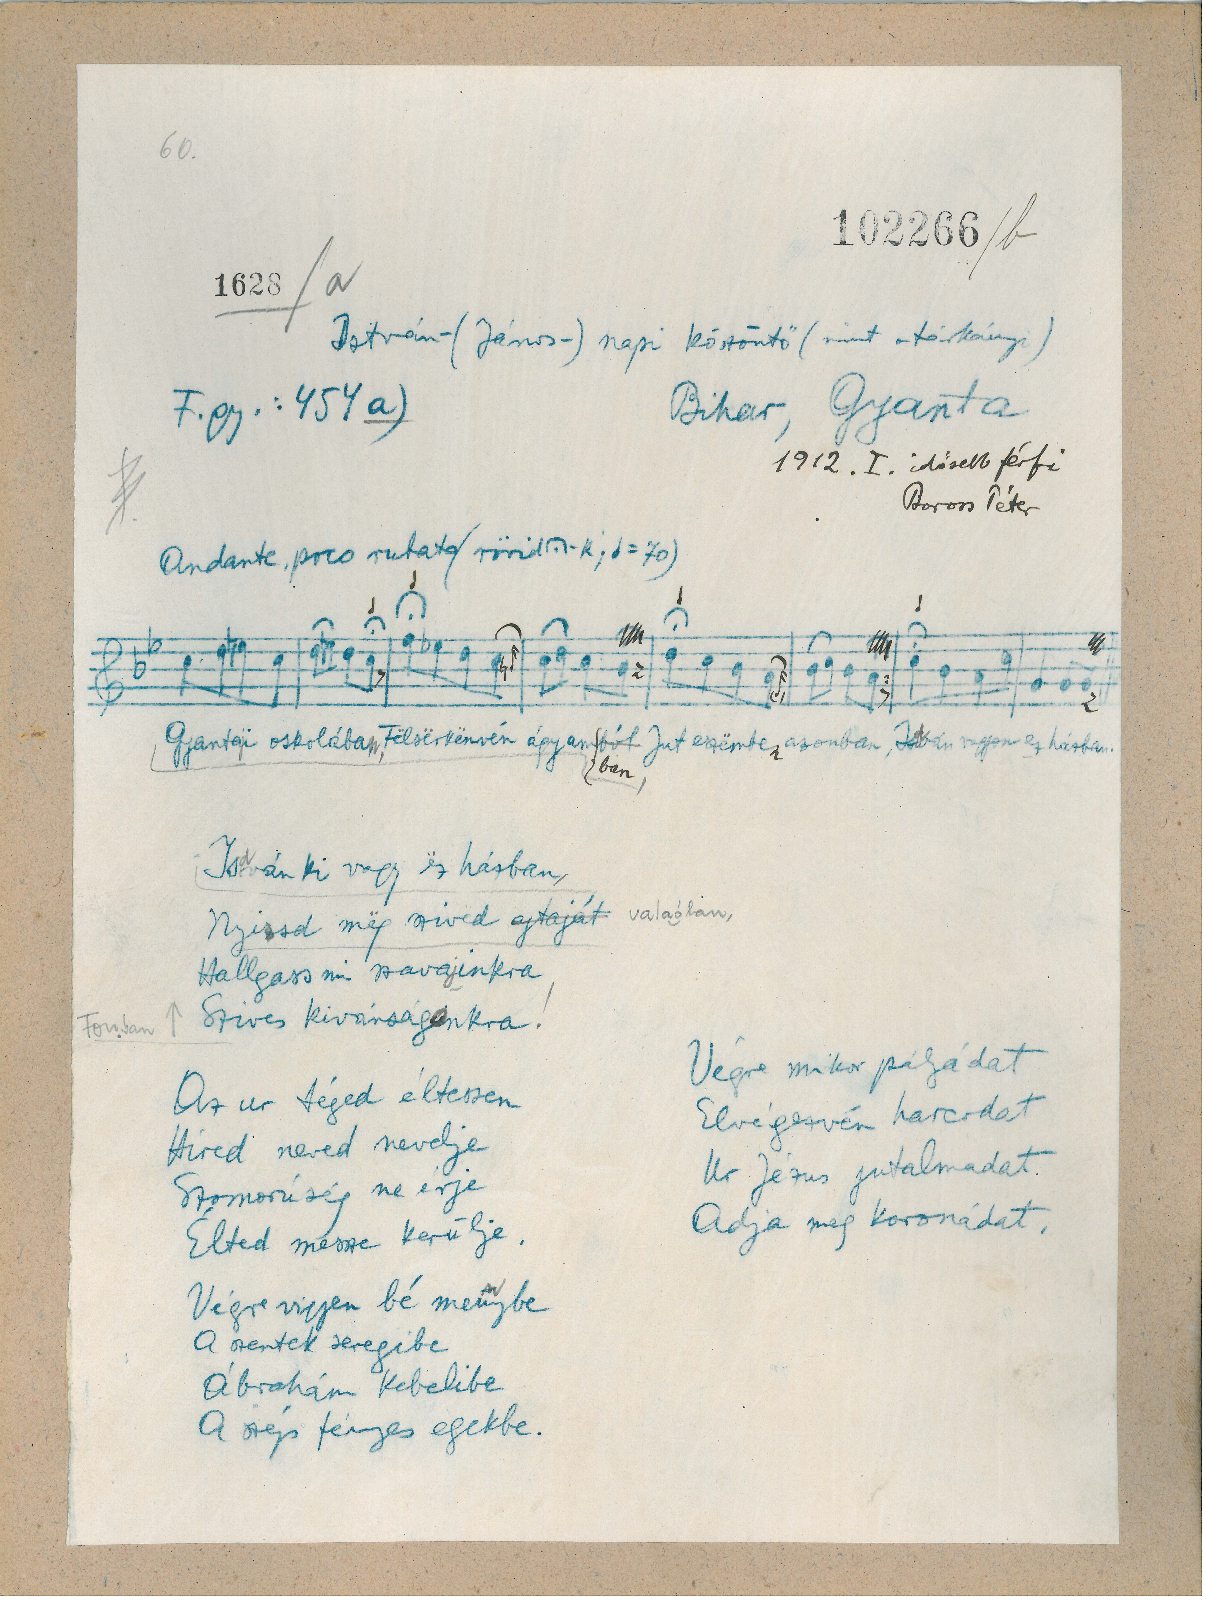 60.
102266/b
1628/a
István-(János-) napi köszöntő (mint a tárkányi)
F. gy.: 454 a)
Bihar, Gyanta
1912. I. idősebb férfi
Boross Péter
Andante, poco rubato (rövid -k; = 70)
Gyantai oskolában, Fëlsërkënvén ágyamból Jut eszëmbe azonban, István vagyon ez házban.
ban,
István ki vagy ëz házban,
Nyissd mëg szived ajtaját valóğlan,
Hallgass mi szavajinkra,
Szives kivánságonkra!
Forban ↑
Az ur téged éltessen
Híred neved nevelje
Szomorúság ne érje
Élted messze kerülje.
Végre vigyen bé menybe
A szentek seregibe
Ábrahám kebelibe
A szép fényes egekbe.
Végre mikor pályádat
Elvégezvén harcodat
Ur Jézus jutalmadat.
Adja meg koronádat.